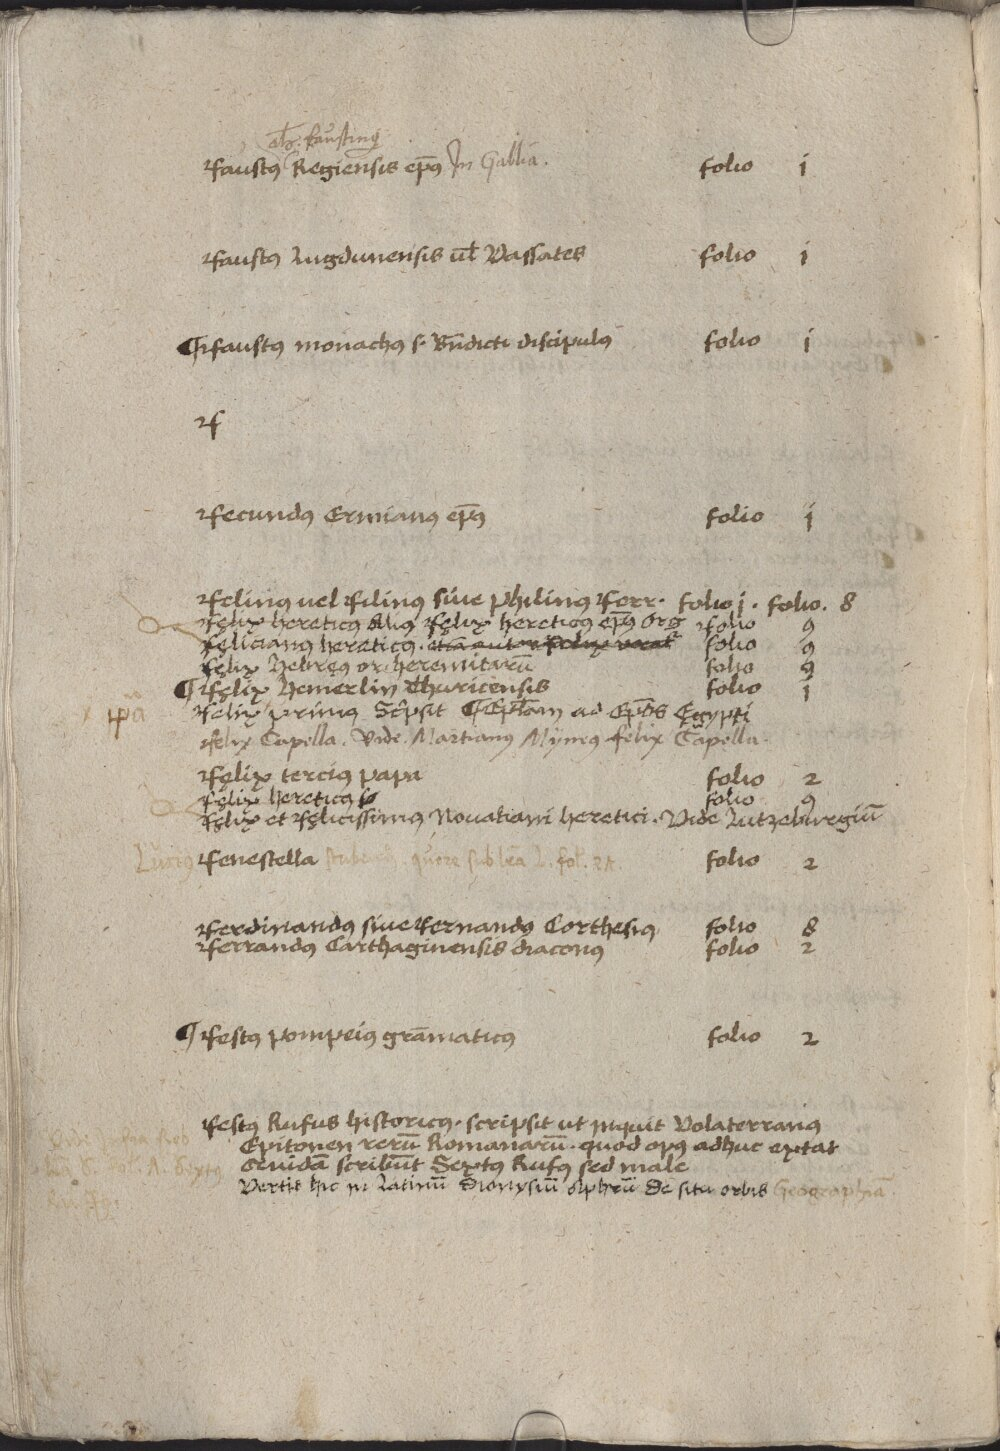 alr. Faustinꝰ
Faustꝰ Regiensis ep̄s In Gallia. folio j
Faustꝰ Lugdunensis ul̄ Vassates folio j
¶ Faustꝰ monachꝰ s. Bn̄dicti discipulꝰ folio j
F
Fecundꝰ Ermianꝰ ep̄s folio j
Felinꝰ uel Filinꝰ siue Philinꝰ Ferr. folio j. folio. 8
Fęlix hereticꝰ Aliꝰ Fęlix hereticꝰ ep̄s Org folio 9
Fęlicianꝰ hereticꝰ. folio 9
Fęlix Hebręꝰ or. heremitarū folio 9
¶ Fęlix Hemerlin Thuricensis folio j
Felix primꝰ Sc̄psit ¶ Ep̄lam ad Ep̄os Egypti
Felix Capella. Vide Martianꝰ Myneꝰ Felix Capella.
Fęlix terciꝰ papa folio 2
Fęlix hereticꝰ folio 9
Fęlix et Fęlicissimꝰ Nouatiani heretici. Vide Lutzeburgiū
Luciꝰ Fenestella folio 2
Ferdinandꝰ siue Fernandꝰ Corthesiꝰ folio 8
Ferrandꝰ Carthaginensis diaconꝰ folio 2
¶ Festꝰ pompeiꝰ grāmaticꝰ folio 2
Festꝰ Rufus historicꝰ. scripsit ut inquit Volaterranꝰ
Epitonen rerū Romanarū. quod opꝰ adhuc extat
Quidā scribūt Sextꝰ Rufꝰ sed male
Vertit hic in latinū Dionysiū Alphrū De situ orbis Geographiā